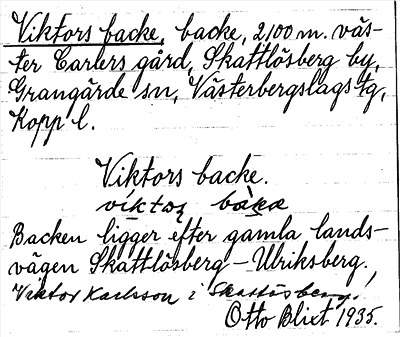 Viktors backe, backe, 2,100 m. väs-
ter Carlers gård, Skattlösberg by,
Grangärde sn, Västerbergslags tg,
Kopp l.
Viktors backe.
Backen ligger efter gamla lands-
vägen Skattlösberg – Ulriksberg.
Viktor Karlsson i Skattlösberg.
Otto Blixt 1935.